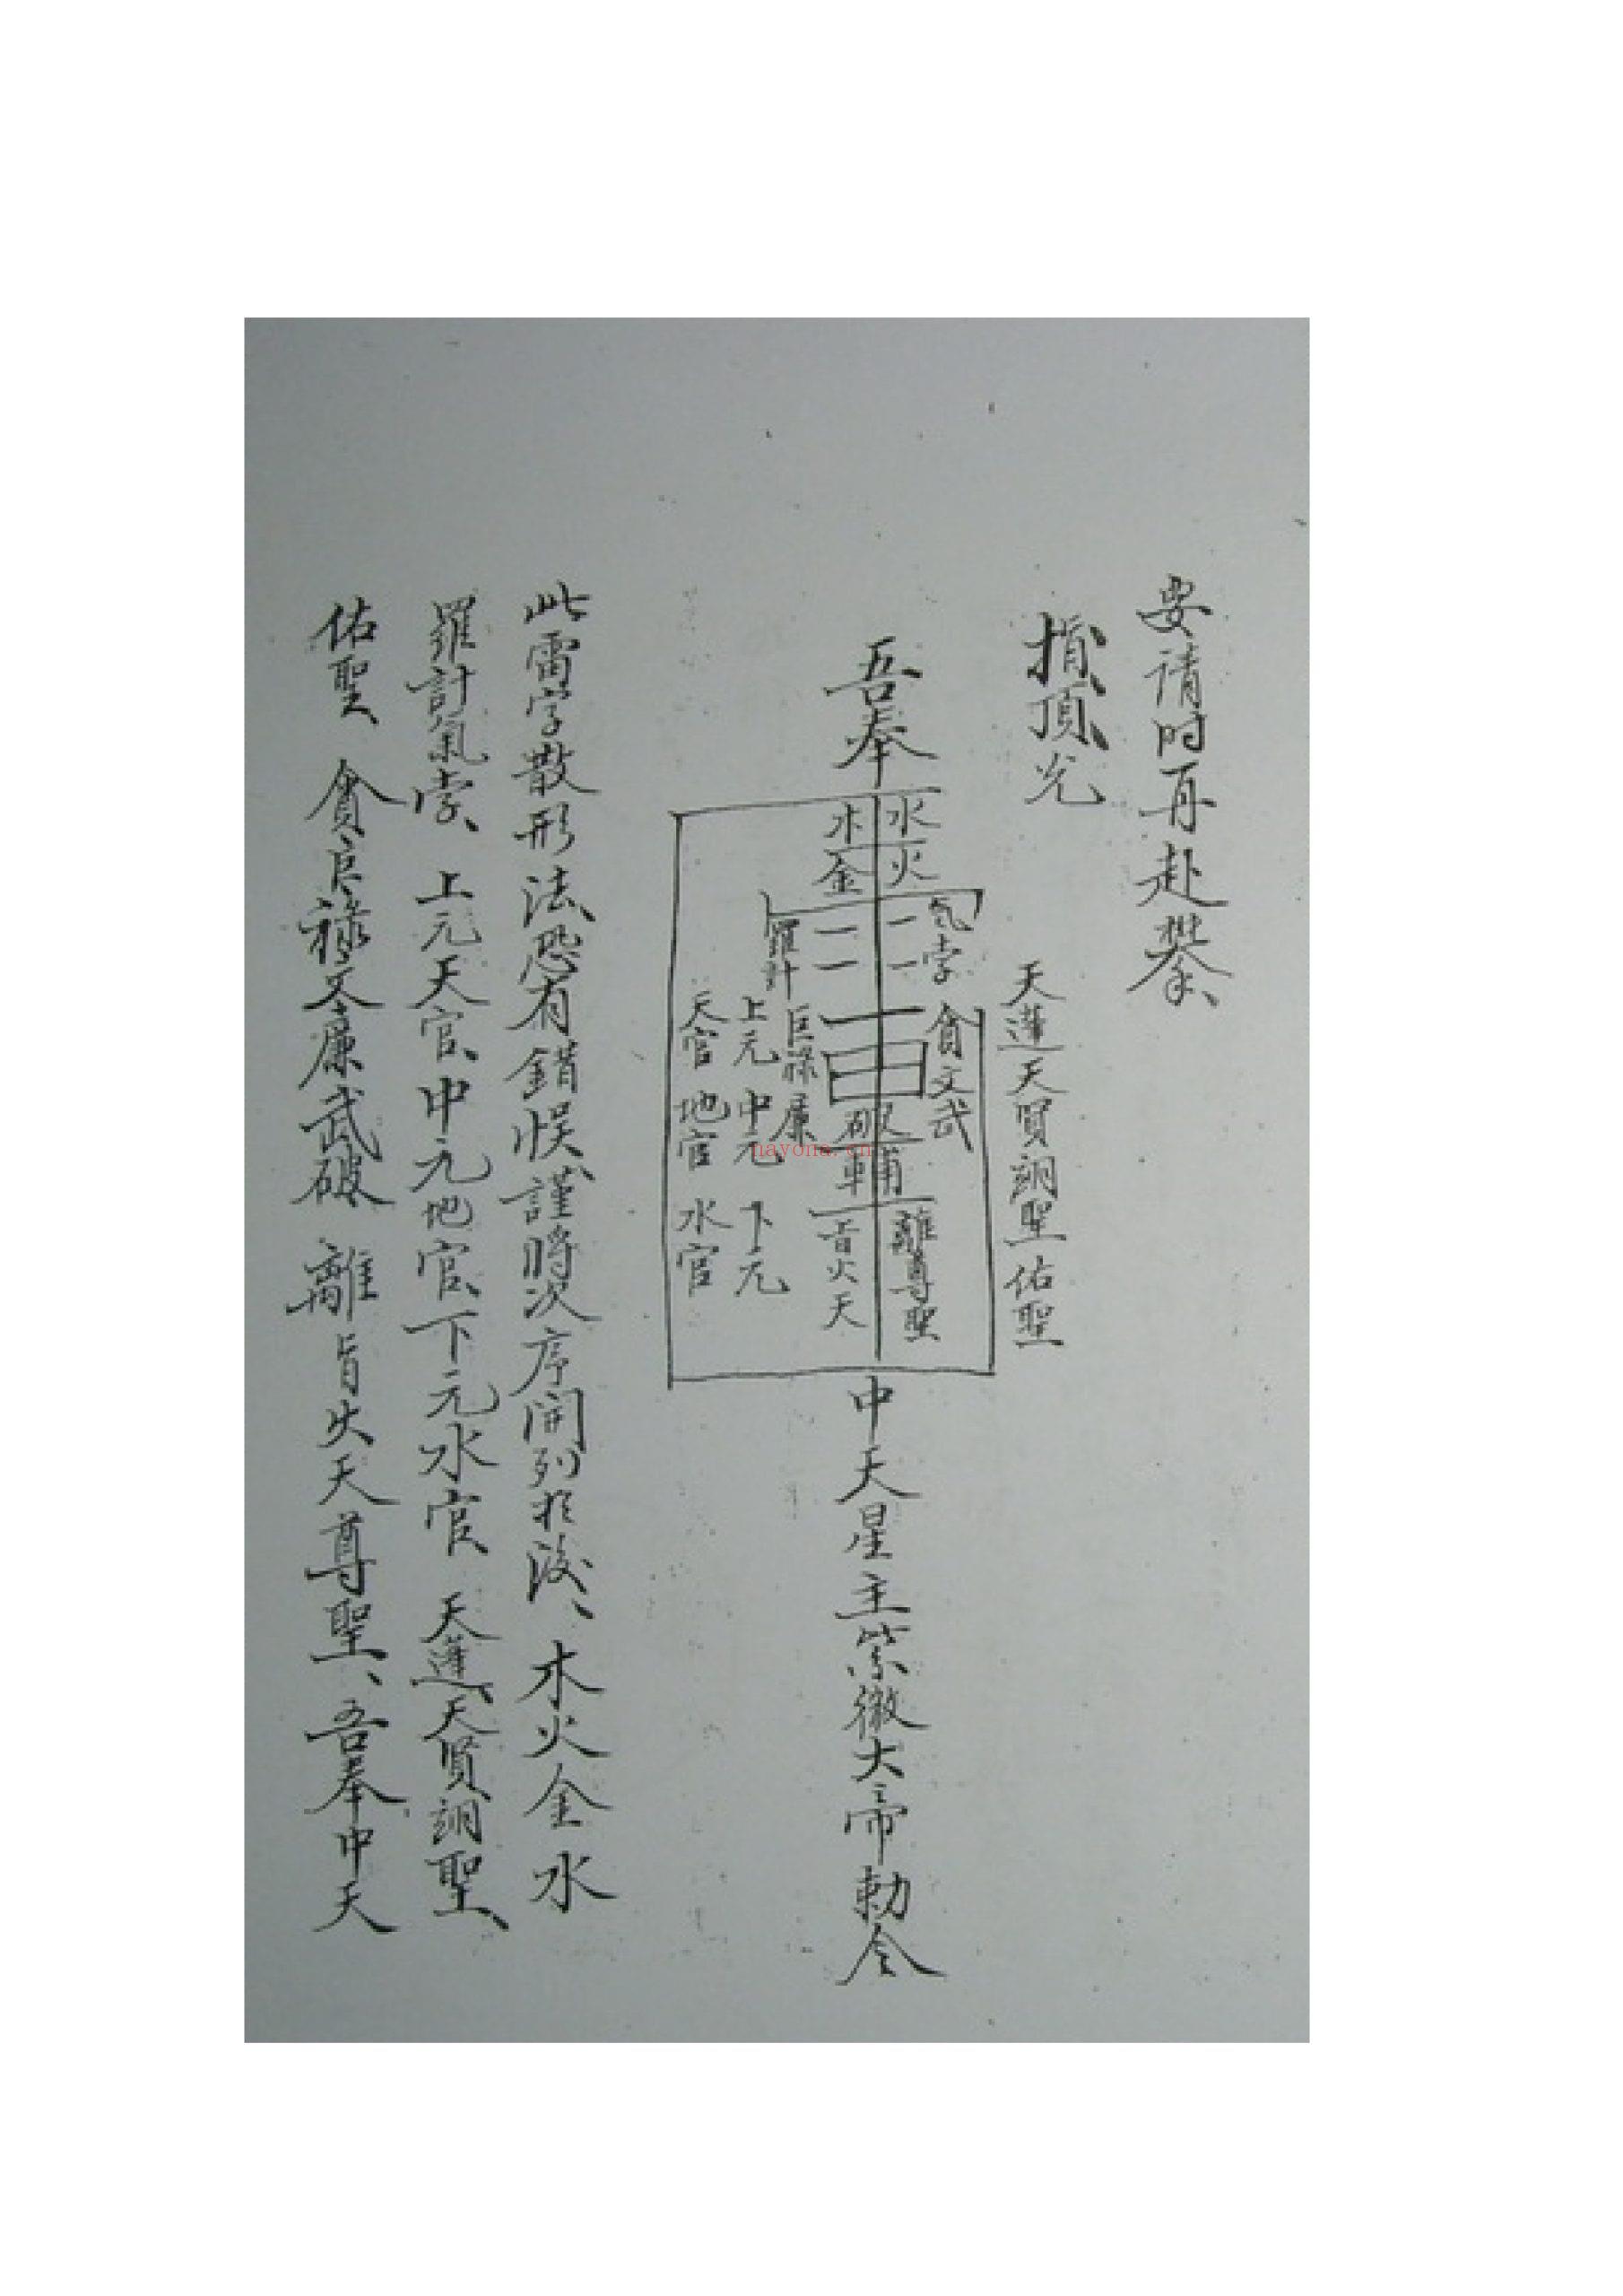 要請时再赴攀、
指頂光
天蓬天賢詡聖佑聖
吾奉
水火
木金
氣孛
羅計
貪文武
巨祿廉
破
輔
離尊聖
旨火天
上元 中元 下元
天官 地官 水官
中天星主紫微大帝勅令
此雷字散形法恐有錯悮謹將次序開列於後、木火金水
羅計氣孛、上元天官、中元地官、下元水官、天蓬、天賢詡聖、
佑聖、貪巨祿文廉武破 離旨火天尊聖、吾奉中天
nayona.cn